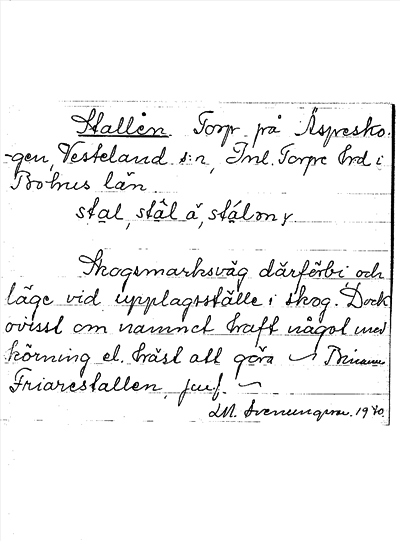 Stallen. Torp på Äspesko-
gen, Vesteland s:n, Inl. Torpe hrd i
Bohus län.
stal, stäl ä,
Skogsmarksväg därförbi och
läge vid upplagsställe i skog. Dock
ovisst om namnet haft något med
körning el. häst att göra ~ Binamn
Friarestallen, juf. ~
LM. Svenungsson. 1940.